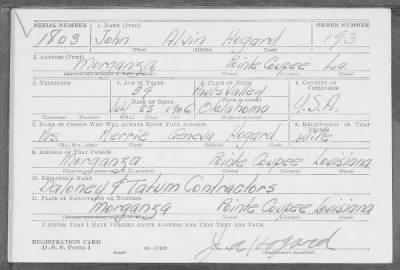 SERIAL NUMBER 1. NAME (Print) ORDER NUMBER
1803 John Alvin Hogard 193
(First) (Middle) (Last)
2. ADDRESS (Print)
Morganza Pointe Coupee La.
(Town) (County) (State)
3. TELEPHONE 4. AGE IN YEARS 5. PLACE OF BIRTH 6. COUNTRY OF CITIZENSHIP
34 Pauls Valley
DATE OF BIRTH
July 25 1906 Oklahoma U.S.A.
(Exchange) (Number) (Mo.) (Day) (Yr.) (State or country)
7. NAME OF PERSON WHO WILL ALWAYS KNOW YOUR ADDRESS 8. RELATIONSHIP OF THAT PERSON
Mrs. Merrie Geneva Hogard Wife
(Mr., Mrs., Miss) (First) (Middle) (Last)
9. ADDRESS OF THAT PERSON
Morganza Pointe Coupee Louisiana
(Town) (County) (State)
10. EMPLOYER'S NAME
Daloney & Tatum Contractors
11. PLACE OF EMPLOYMENT OR BUSINESS
Morganza Pointe Coupee Louisiana
(Town) (County) (State)
I AFFIRM THAT I HAVE VERIFIED ABOVE ANSWERS AND THAT THEY ARE TRUE.
REGISTRATION CARD
D. S. S. Form 1 16—17105
J. A. Hogard